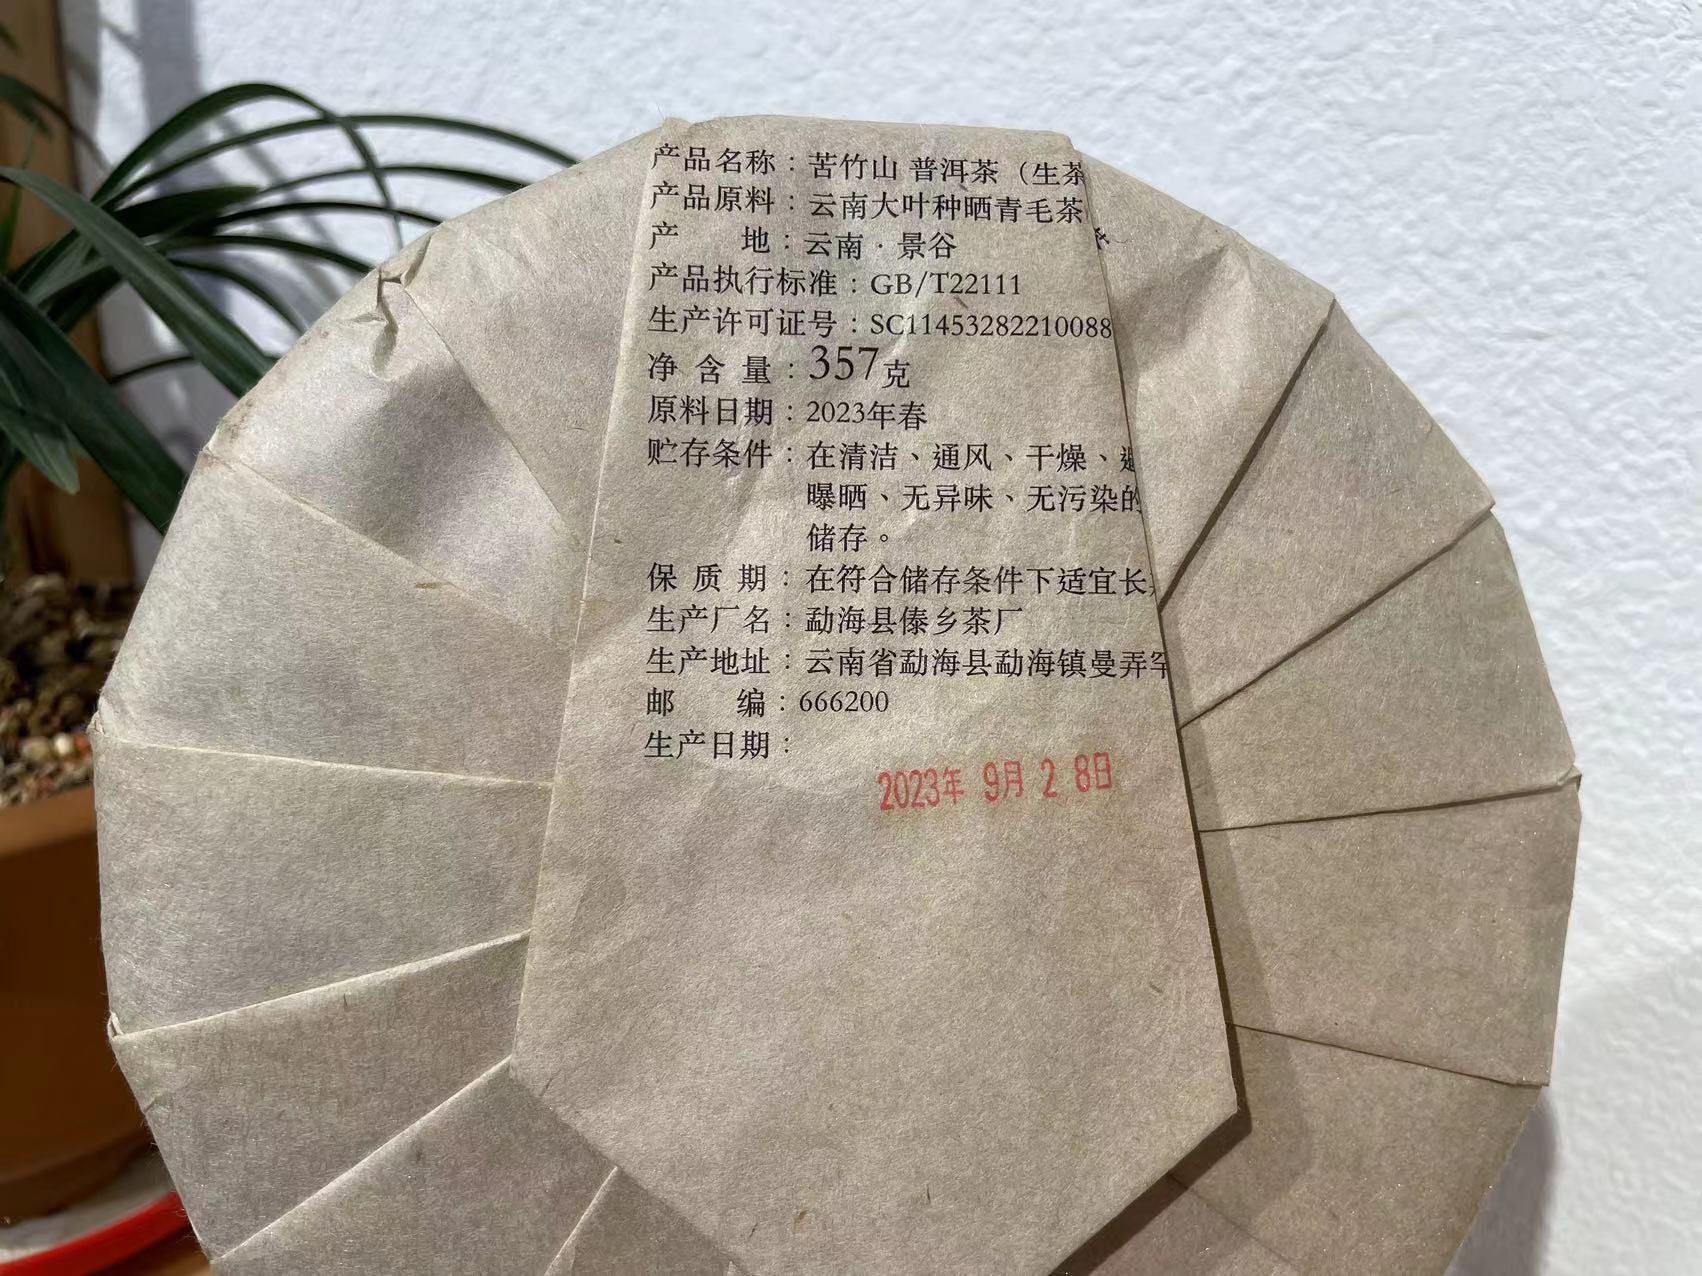 产品名称：苦竹山 普洱茶（生茶
产品原料：云南大叶种晒青毛茶
产　　地：云南·景谷
产品执行标准：GB/T22111
生产许可证号：SC11453282210088
净 含 量：357克
原料日期：2023年春
贮存条件：在清洁、通风、干燥、避
曝晒、无异味、无污染的
储存。
保 质 期：在符合储存条件下适宜长
生产厂名：勐海县傣乡茶厂
生产地址：云南省勐海县勐海镇曼弄罕
邮　　编：666200
生产日期：
2023年 9月 2 8日